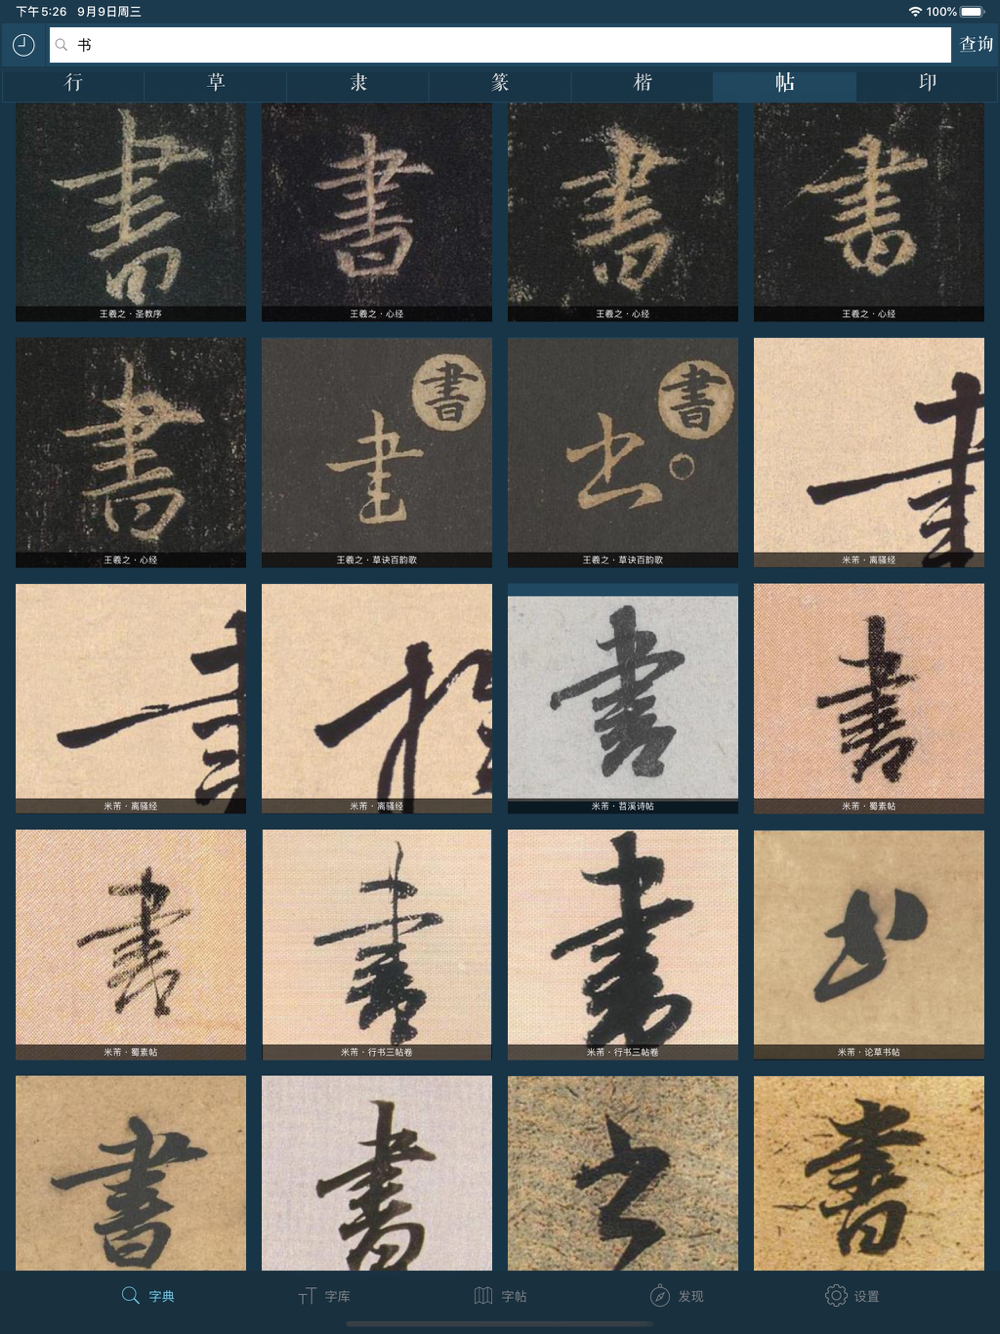 下午5:26 9月9日周三 100%
书 查询
行 草 隶 篆 楷 帖 印
書 書 書 書
王羲之·圣教序 王羲之·心经 王羲之·心经 王羲之·心经
書 書 書
王羲之·心经 王羲之·草诀百韵歌 王羲之·草诀百韵歌 米芾·离骚经
書 書
米芾·离骚经 米芾·离骚经 米芾·苕溪诗帖 米芾·蜀素帖
書 書 書 书
米芾·蜀素帖 米芾·行书三帖卷 米芾·行书三帖卷 米芾·论草书帖
書 書 书 書
字典 字库 字帖 发现 设置